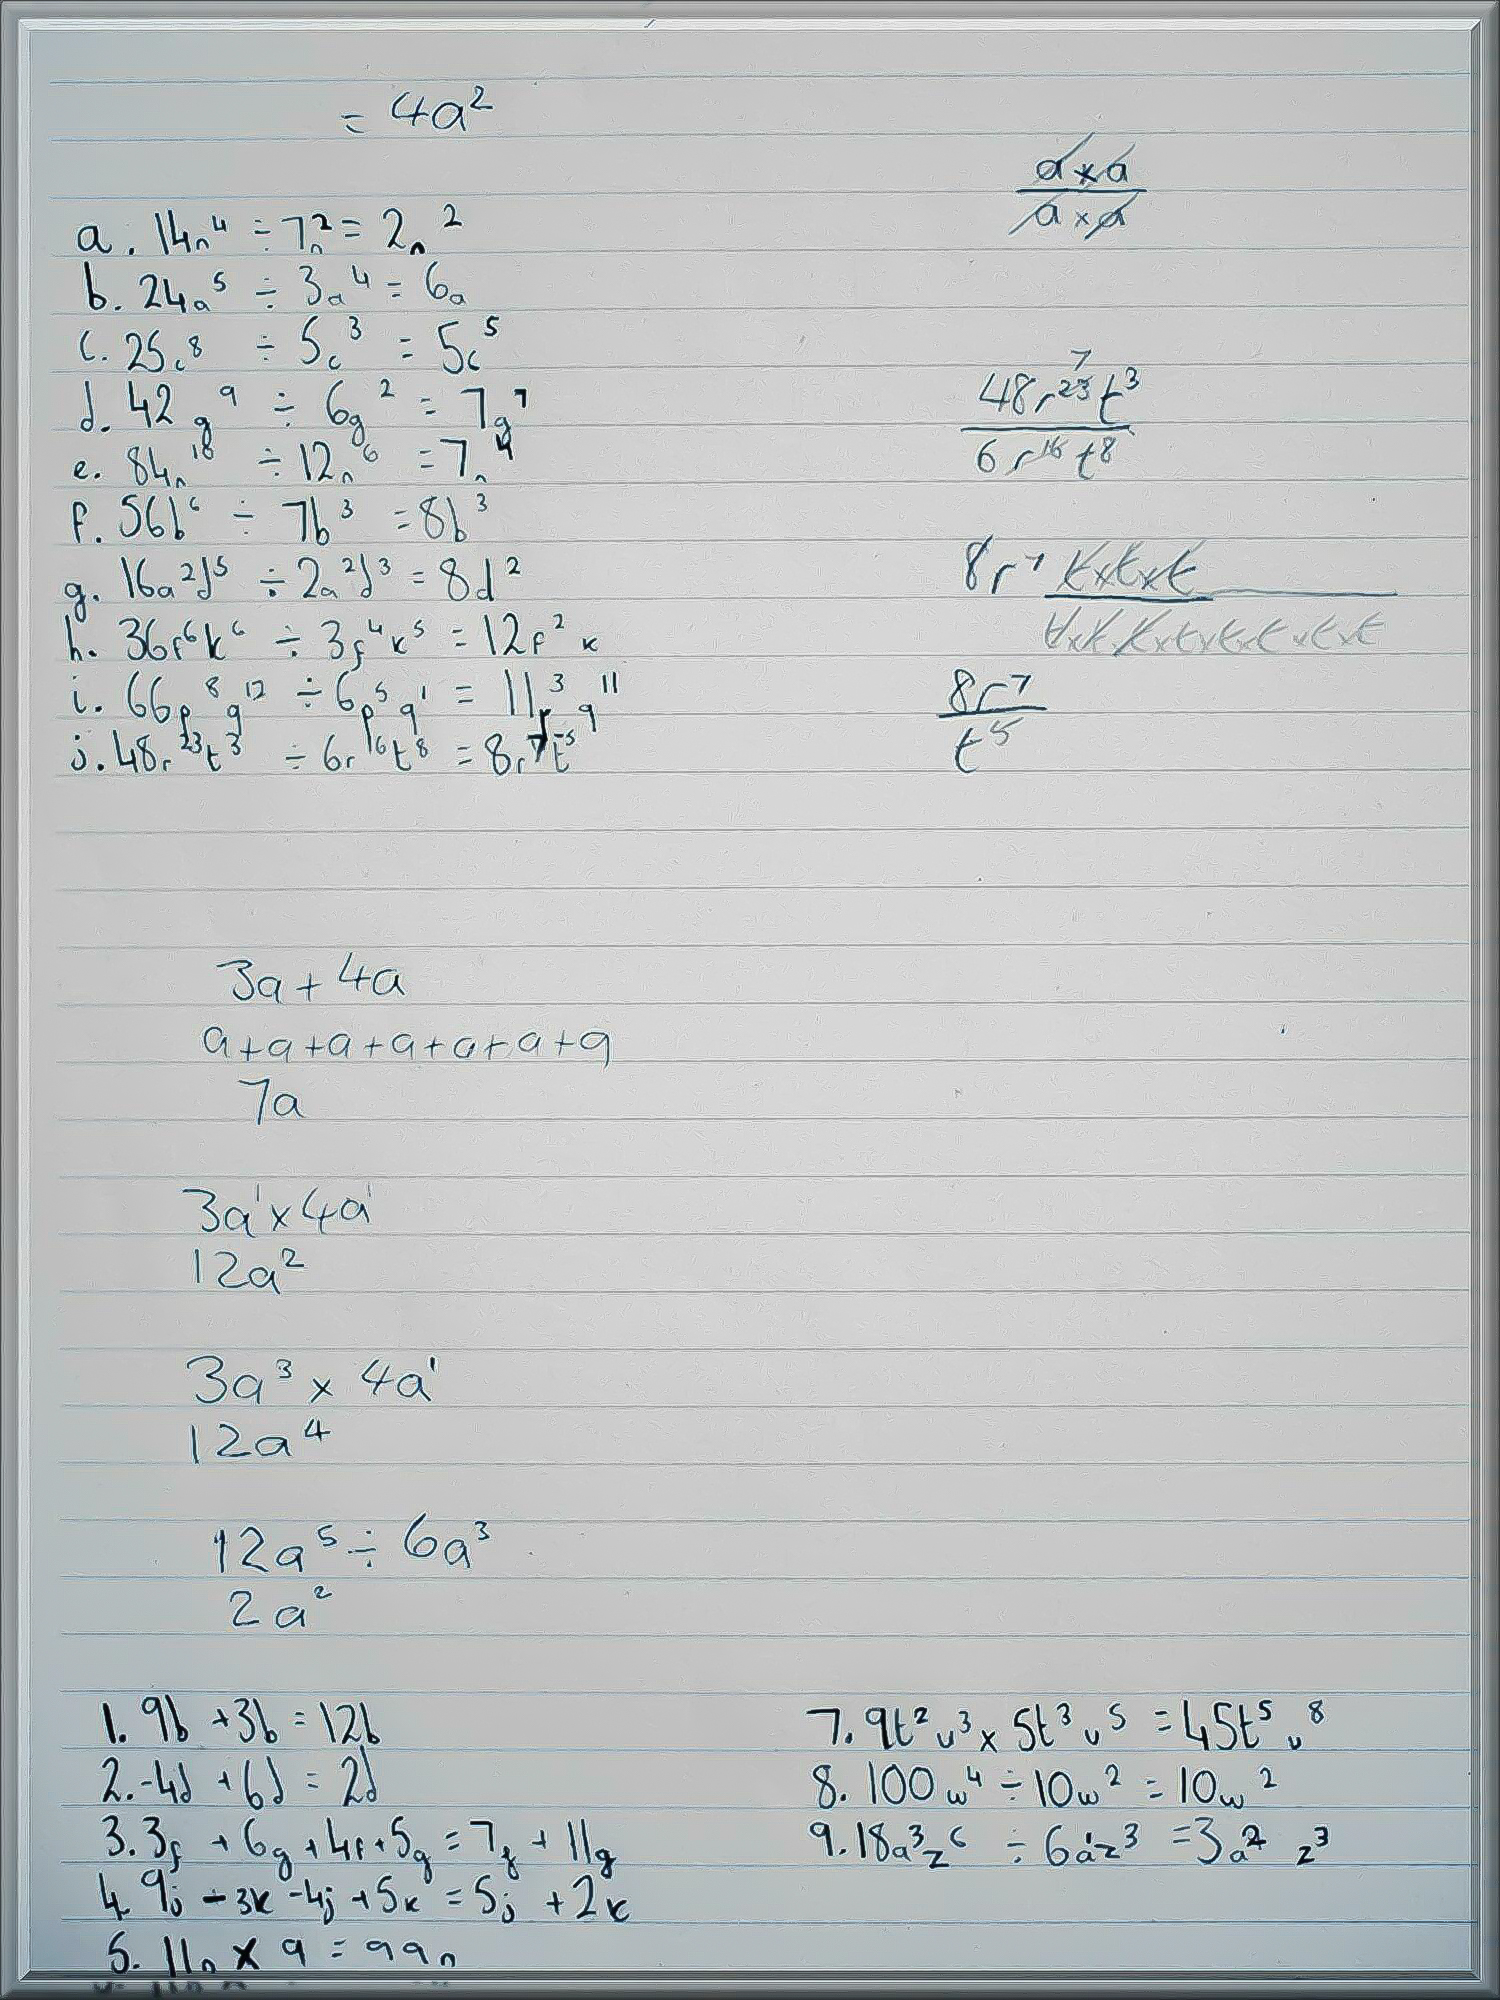 = 4a²
a × a
a × a
a. 14n⁴ ÷ 7n² = 2n²
b. 24a⁵ ÷ 3a⁴ = 6a
c. 25c⁸ ÷ 5c³ = 5c⁵
d. 42g⁹ ÷ 6g² = 7g⁷
e. 84n¹⁰ ÷ 12n⁶ = 7n⁴
f. 56b⁶ ÷ 7b³ = 8b³
g. 16a²d⁵ ÷ 2a²d³ = 8d²
h. 36f⁶k⁶ ÷ 3f⁴k⁵ = 12f²k
i. 66p⁸q¹² ÷ 6p⁵q¹ = 11p³q¹¹
j. 48r²³t³ ÷ 6r¹⁶t⁸ = 8r⁷t⁻⁵
7
48r²³t³
6r¹⁶t⁸
8r⁷ t×t×t
t×t×t×t×t×t×t×t
8r⁷
t⁵
3a + 4a
a+a+a+a+a+a+a
7a
3a¹ × 4a¹
12a²
3a³ × 4a¹
12a⁴
12a⁵ ÷ 6a³
2a²
1. 9b + 3b = 12b
2. -4d + 6d = 2d
3. 3f + 6g + 4f + 5g = 7f + 11g
4. 9j - 3k - 4j + 5k = 5j + 2k
5. 11n × 9 = 99n
7. 9t²u³ × 5t³u⁵ = 45t⁵u⁸
8. 100w⁴ ÷ 10w² = 10w²
9. 18a³z⁶ ÷ 6a¹z³ = 3a²z³